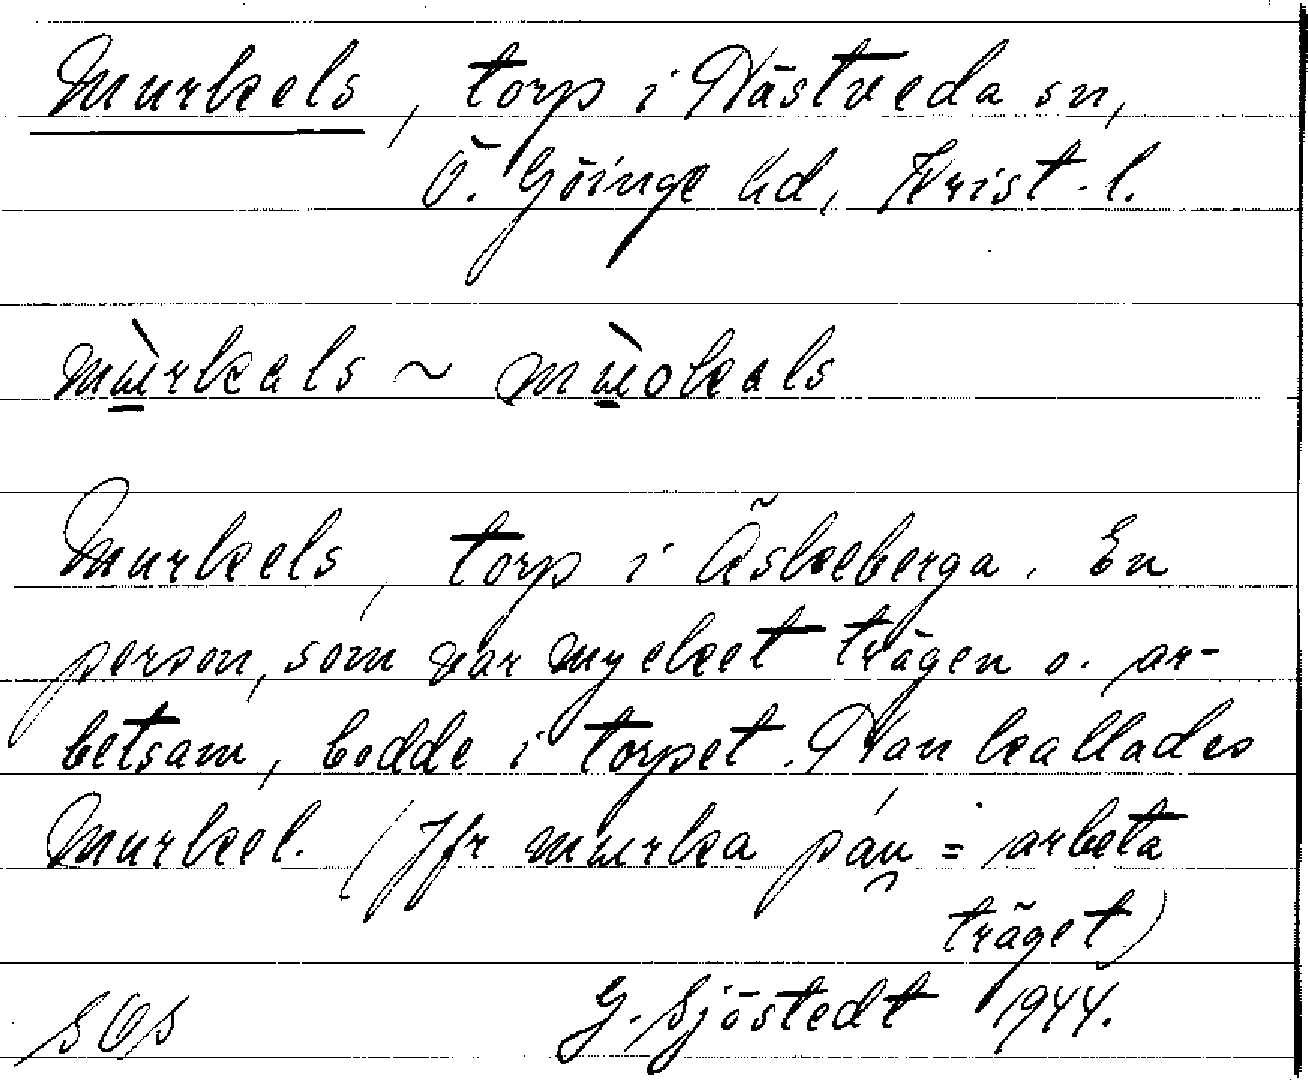 Murkels, torp i Hästveda sn,
Ö. Göinge hd, Krist. l.
mùrkəls ~ mùokəls
Murkels, torp i Äskeberga. En
person, som var mycket trägen o. ar-
betsam, bodde i torpet. Han kallades
Murkel. (Jfr murka på = arbeta
träget)
G. Sjöstedt 1944.